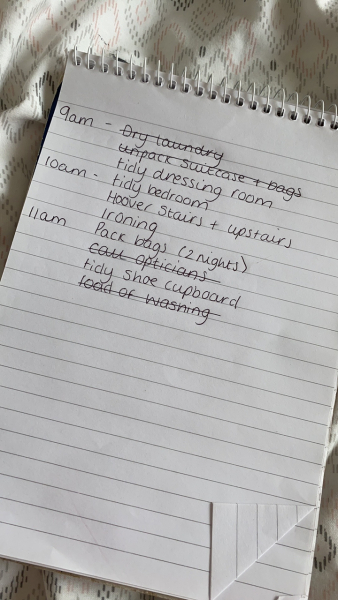 9am - Dry laundry
unpack suitcase + bags
tidy dressing room
10am - tidy bedroom
Hoover stairs + upstairs
11am Ironing
Pack bags (2 nights)
call opticians
tidy shoe cupboard
load of washing